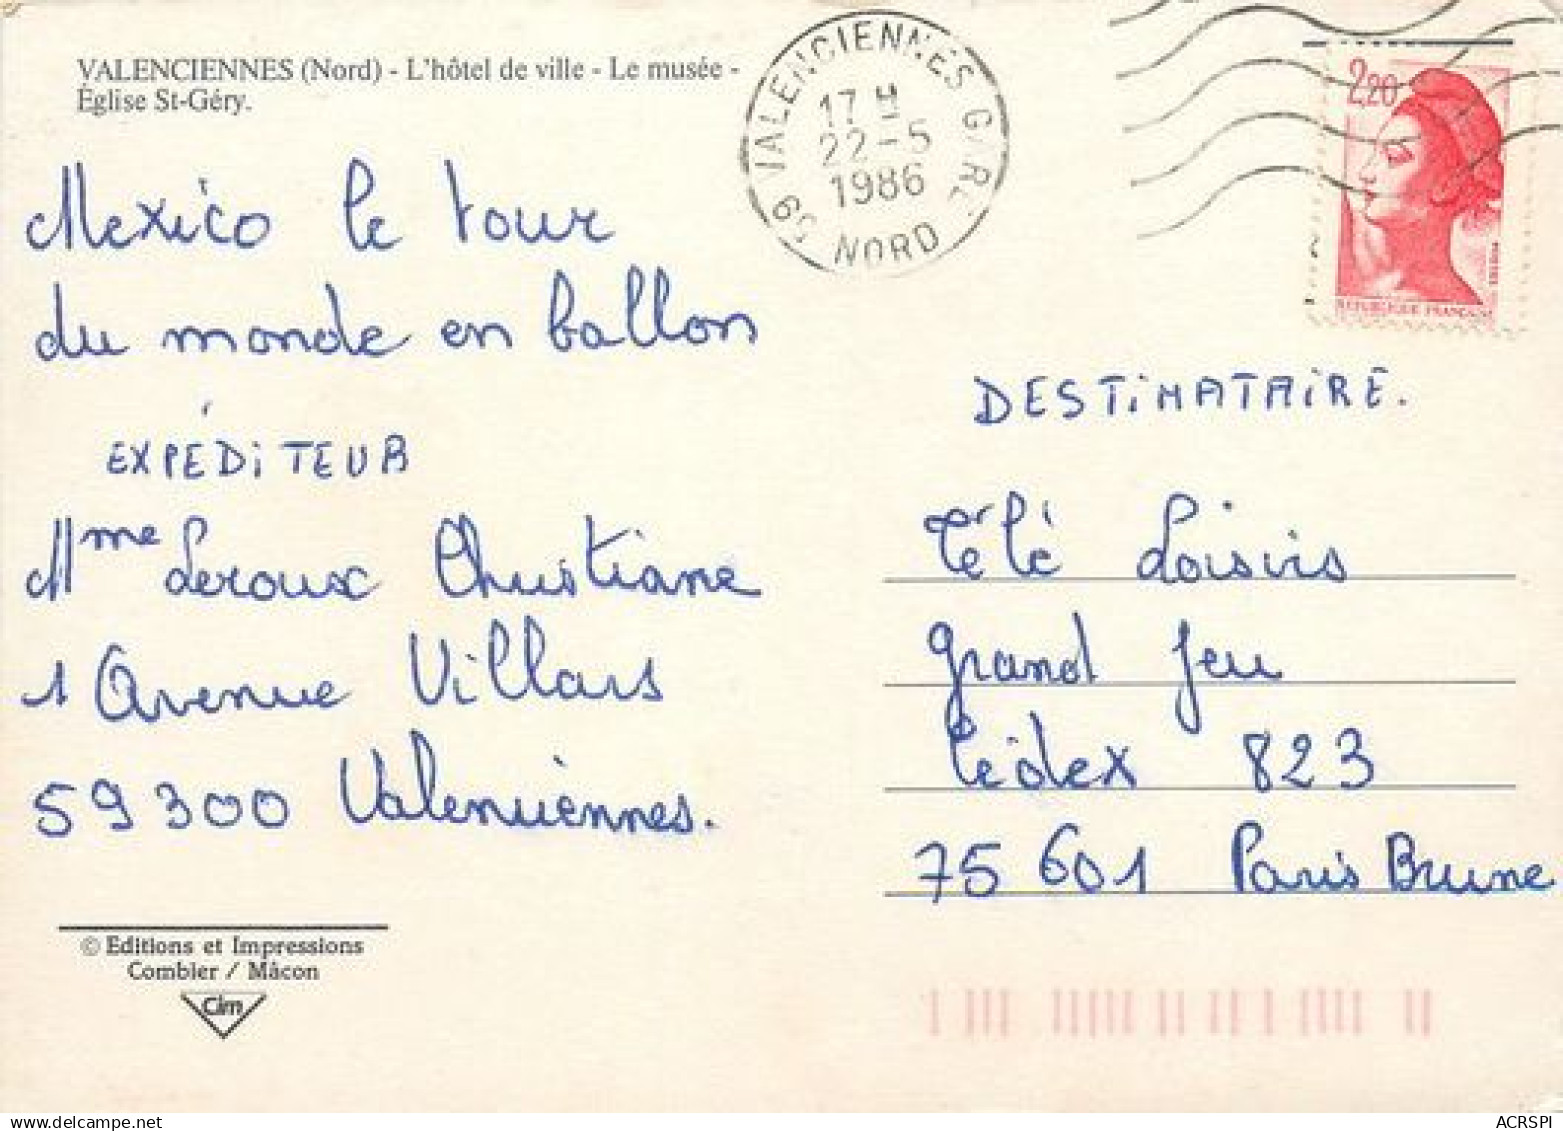 VALENCIENNES (Nord) - L'hôtel de ville - Le musée -
Église St-Géry.
59 VALENCIENNES GARE
17 H
22-5
1986
NORD
2,20
REPUBLIQUE FRANÇAISE
Mexico le tour
du monde en ballon
EXPÉDITEUR
Mme Leroux Christiane
1 Avenue Villars
59300 Valenciennes.
DESTINATAIRE.
Télé Loisirs
Grand Jeu
Cédex 823
75 601 Paris Brune
© Editions et Impressions
Combier / Mâcon
Cim
ACRSPI